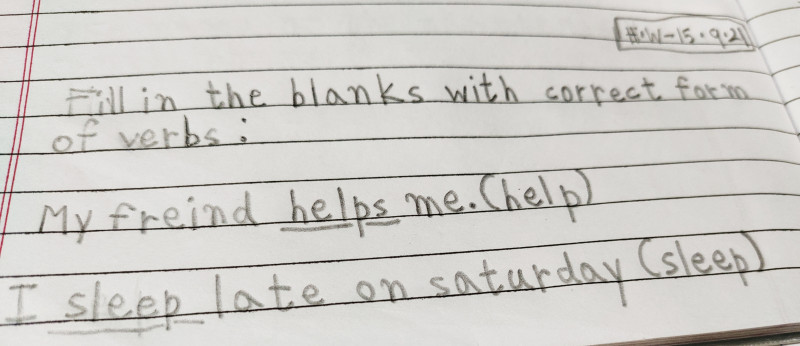 H.W-15.9.21
Fill in the blanks with correct form
of verbs:
My freind helps me.(help)
I sleep late on saturday (sleep)